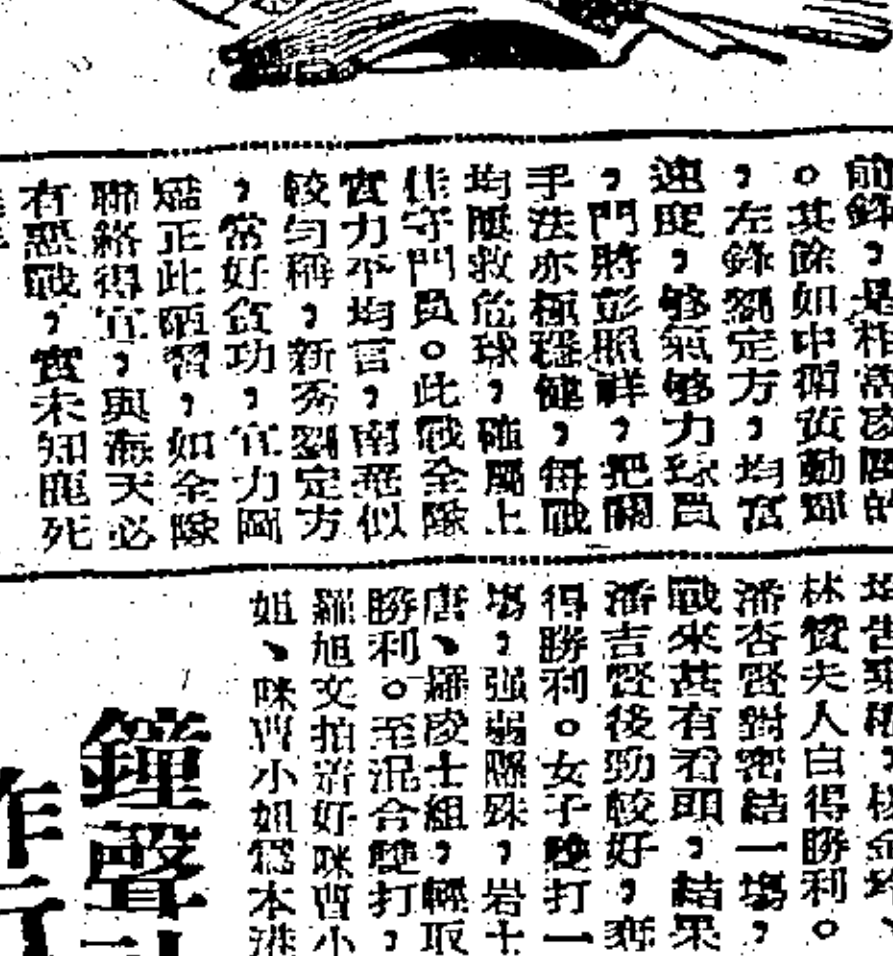 前鋒，是相當活躍的
。其餘如中衛黃勤輝
，左鋒劉定方，均富
速度，够氣够力球員
，門將彭照祥，把關
手法亦極穩健，每戰
均匪救危球，確屬上
佳守門員。此戰全隊
實力平均言，南燕似
較勻稱，新秀劉定方
，常好貪功，宜力圖
矯正此陋習，如全隊
聯絡得宜，與海天必
有惡戰，實未知鹿死
林贊夫人白得勝利。
潘杏賢對密結一場，
戰來甚有看頭，結果
潘吉賢後勁較好，奪
得勝利。女子雙打一
場，强弱懸殊，岩士
唐、羅凌士組，輕取
勝利。至混合雙打，
羅旭文拍濟好咪曹小
姐、咪曹小姐爲本港
鐘聲
昨